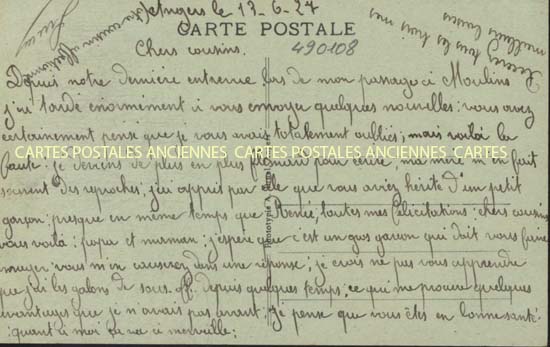 Angers le 13-6-24
CARTE POSTALE
Chers cousins.
490108
Depuis notre dernière entrevue lors de mon passage à Moulins
j'ai tardé enormément à vous envoyer quelques nouvelles: vous avez
certainement pensé que je vous avais totalement oubliés; mais voilà la
faute: je deviens de plus en plus flémard pour écrire, ma mère m'en fait
CARTES POSTALES ANCIENNES CARTES POSTALES ANCIENNES CARTES
souvent des reproches; j'ai appris par elle que vous aviez hérité d'un petit
garçon; presque en même temps que Renée, toutes mes félicitations: chers cousins
vous voilà: papa et maman; j'espère que c'est un gros garçon qui doit vous faire
: vous m'en causerez dans une réponse; je crois ne pas vous apprendre
que j'ai les galons de sous-off. depuis quelques temps, ce qui me procure quelques
avantages que je n'avais pas avant; je pense que vous êtes en bonne santé:
quant à moi ça va à merveille;
Recevez tous les trois mes
meilleurs baisers